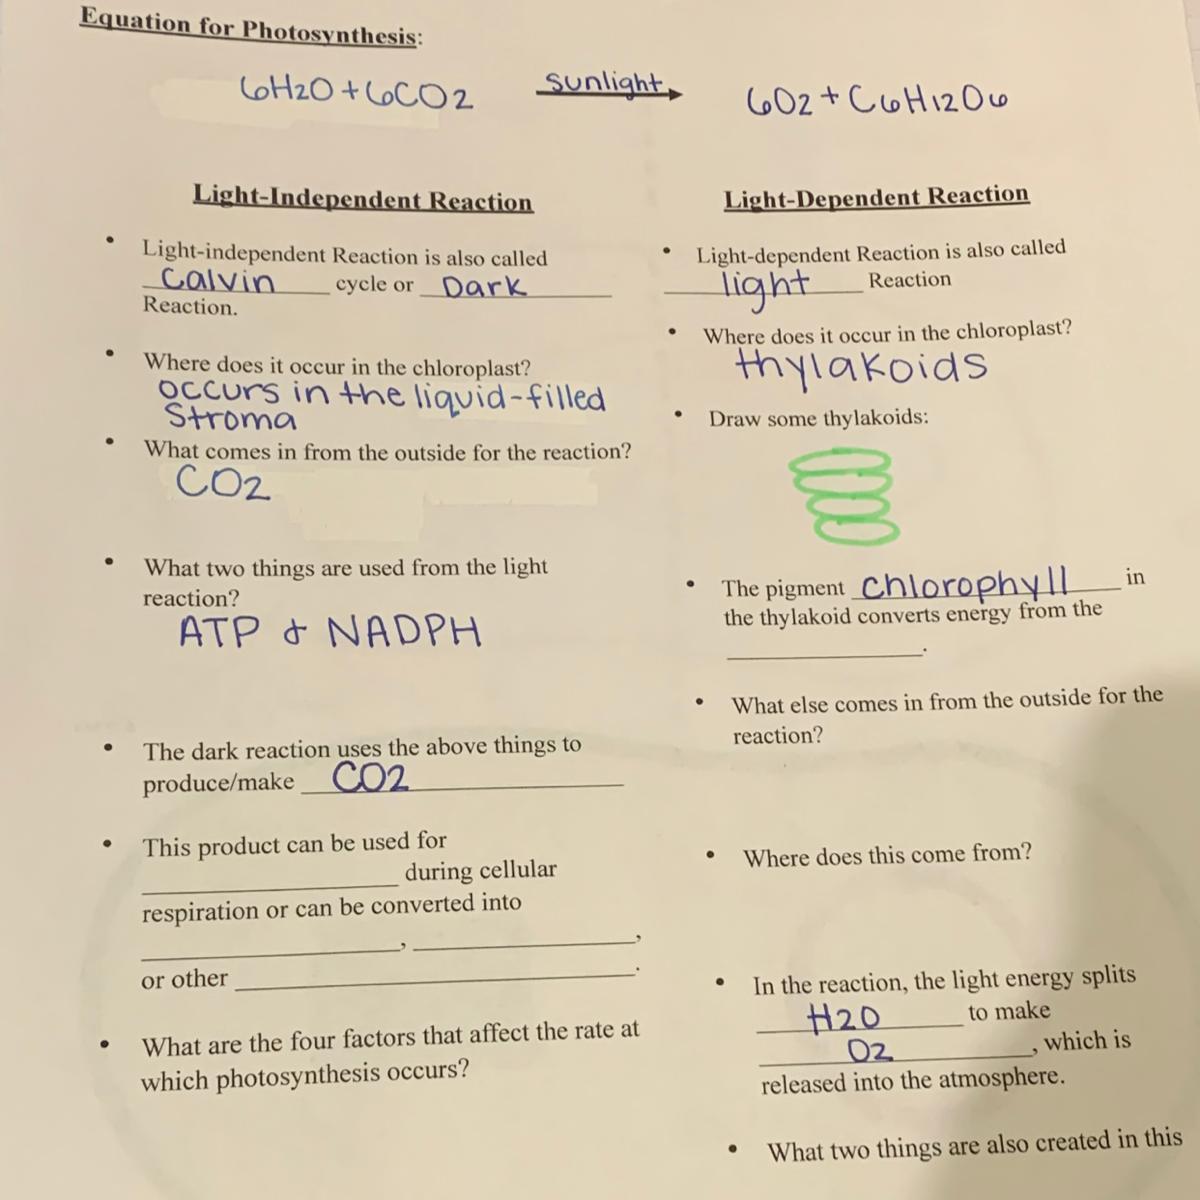 Equation for Photosynthesis:
6H2O + 6CO2 sunlight 6O2 + C6H12O6
Light-Independent Reaction
Light-independent Reaction is also called
Calvin cycle or Dark
Reaction.
Where does it occur in the chloroplast?
occurs in the liquid-filled
Stroma
What comes in from the outside for the reaction?
CO2
What two things are used from the light
reaction?
ATP & NADPH
The dark reaction uses the above things to
produce/make CO2
This product can be used for
during cellular
respiration or can be converted into
, ,
or other .
What are the four factors that affect the rate at
which photosynthesis occurs?
Light-Dependent Reaction
Light-dependent Reaction is also called
light Reaction
Where does it occur in the chloroplast?
thylakoids
Draw some thylakoids:
The pigment chlorophyll in
the thylakoid converts energy from the
.
What else comes in from the outside for the
reaction?
Where does this come from?
In the reaction, the light energy splits
H2O to make
O2, which is
released into the atmosphere.
What two things are also created in this